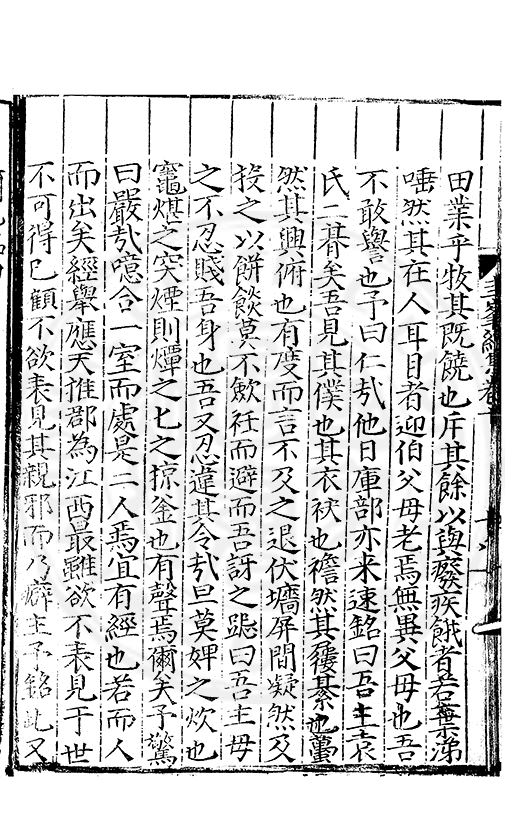 田業乎牧其既饒也斥其餘以與癈疾餓者若棄涕
唾然其在人耳目者迎伯父母老焉無異父母也吾
不敢譽也予曰仁㢤他日庫部亦来速銘曰吾主袁
氏二朞矣吾見其僕也其衣袂也襜然其屨綦也蠒
然其興俯也有度而言不及之退伏墻屏間凝然及
投之以餅餤莫不歛衽而避而吾訝之跽曰吾主母
之不忍賤吾身也吾又忍違其令㢤旦莫婢之炊也
竈煁之突煙則燀之匕之掠釜也有聲焉爾矣予驚
曰嚴㢤噫合一室而處是二人焉宜有經也若而人
而出矣經舉應天推郡為江西最雖欲不表見于世
不可得已顧不欲表見其親邪而乃癖主予銘此又